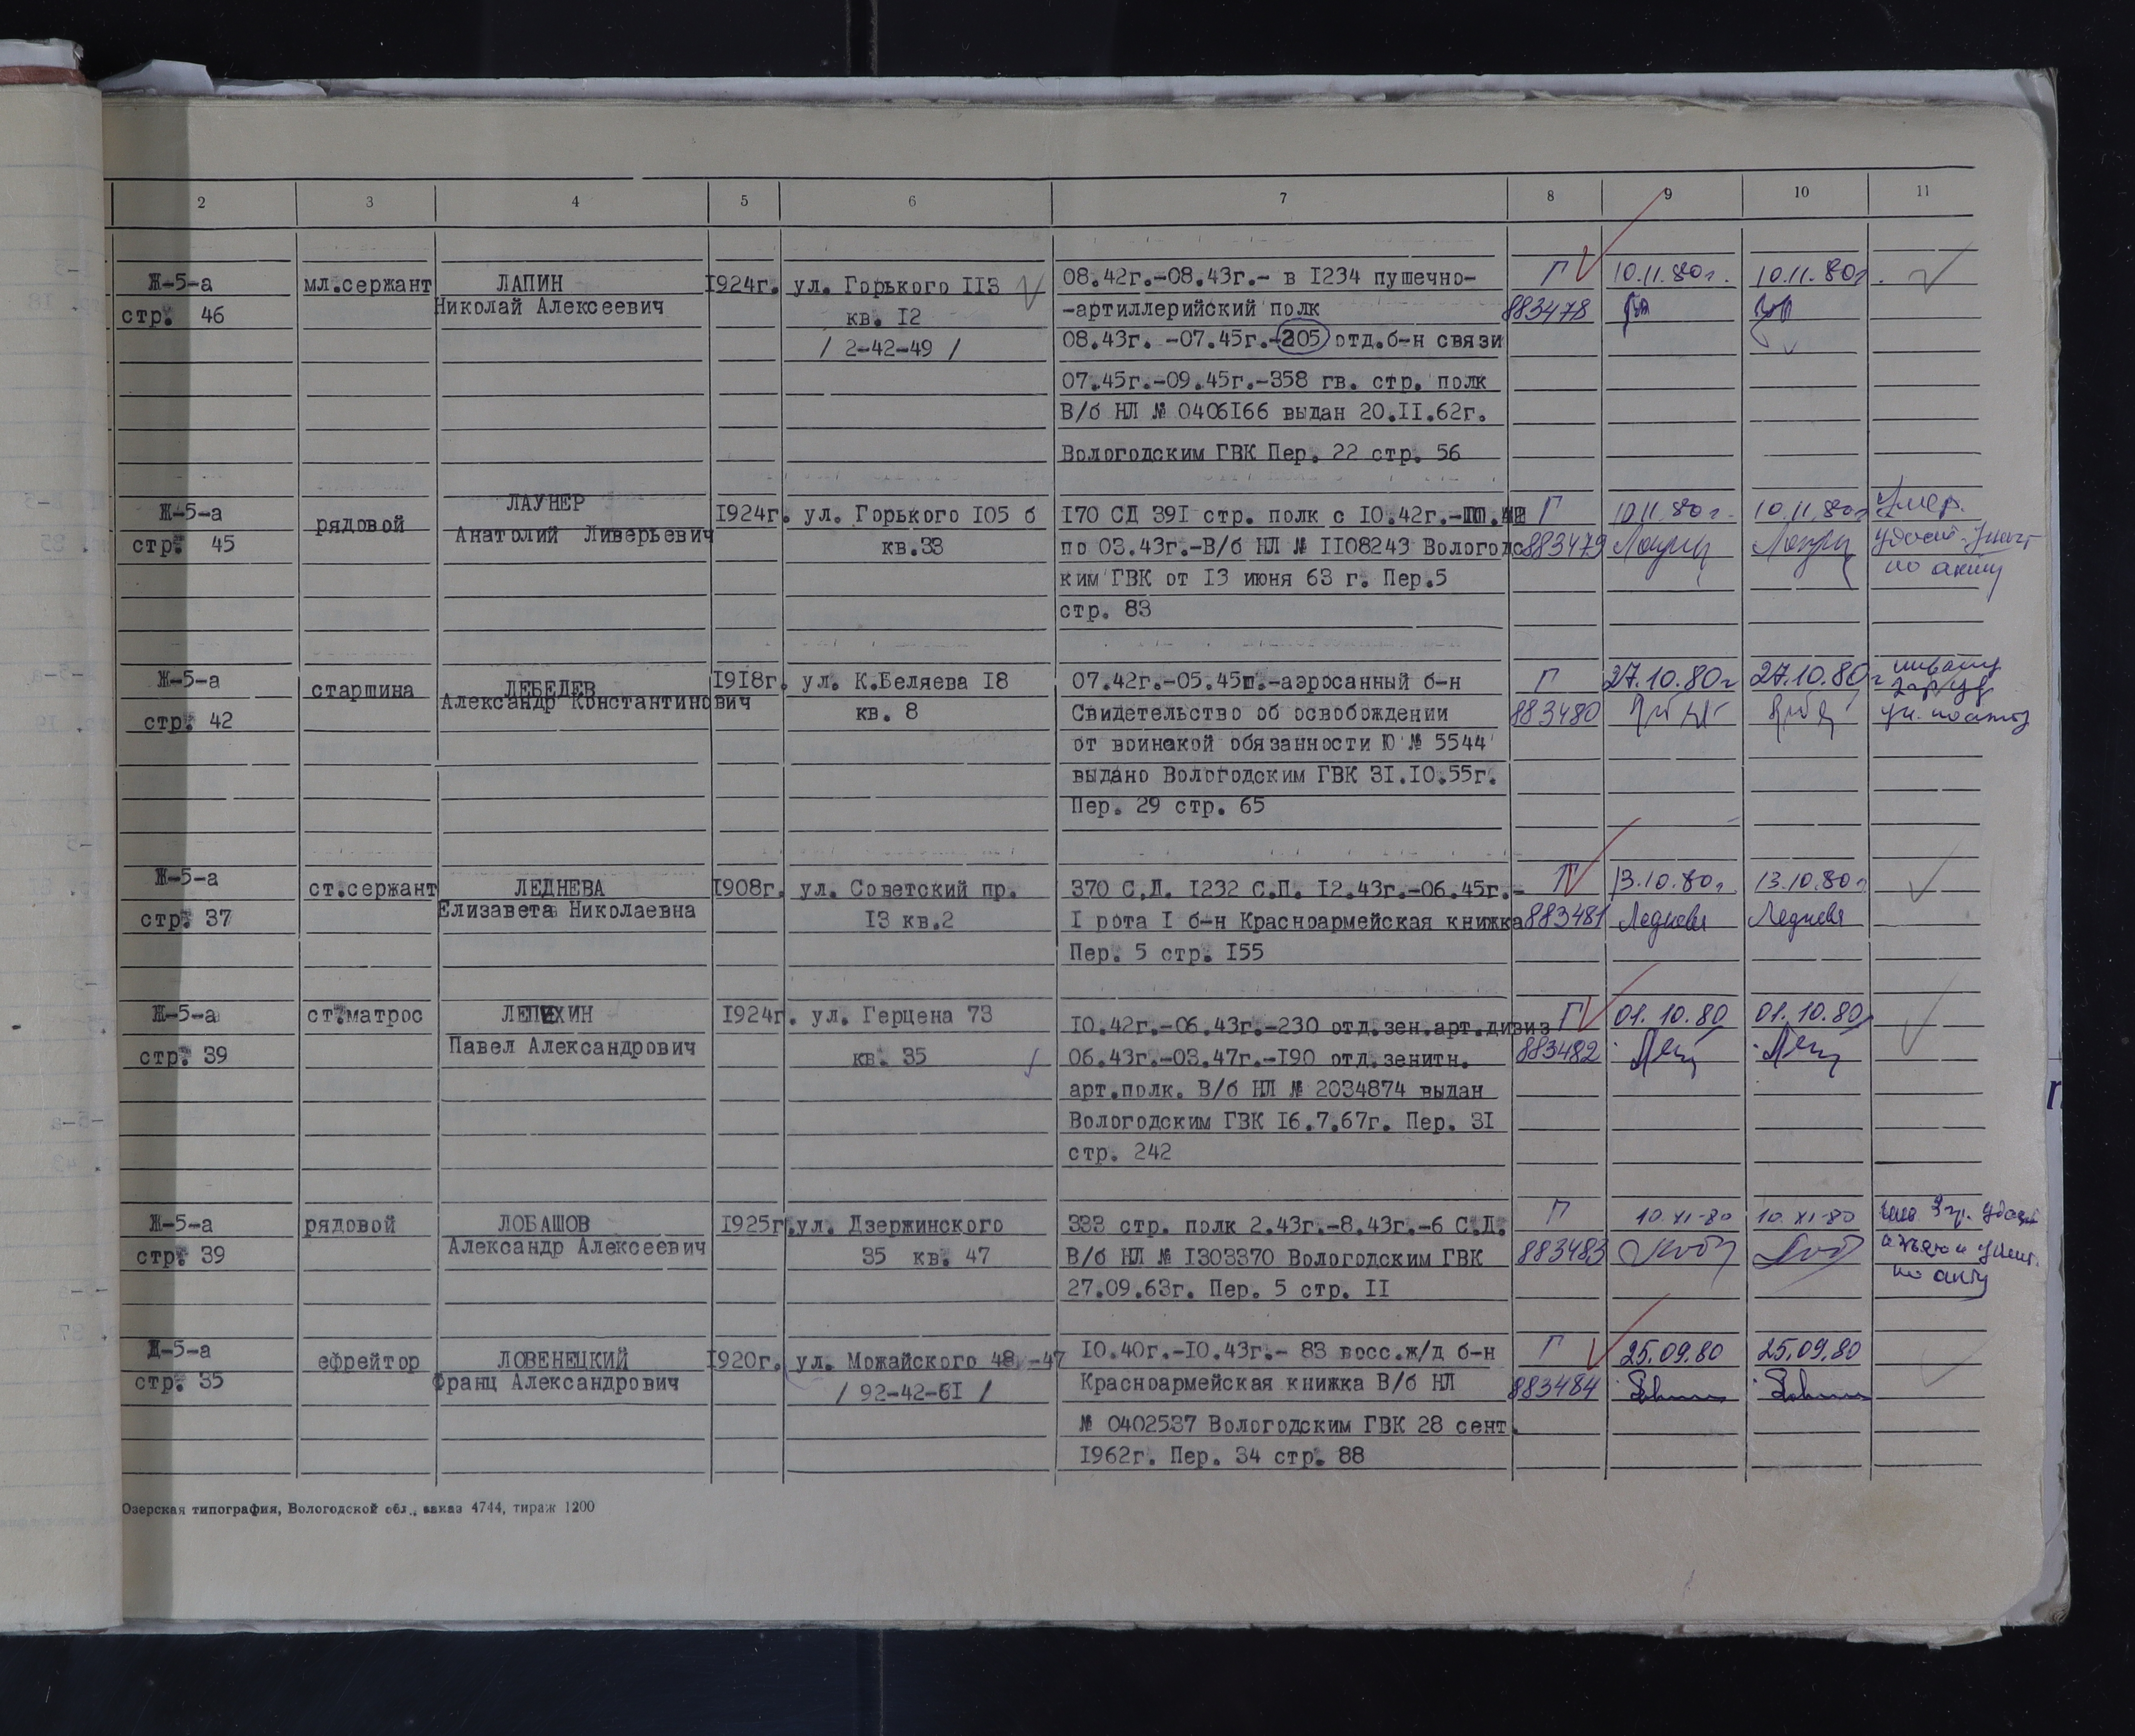 2 3 4 5 6 7 8 9 10 11
Ж-5-а мл.сержант ЛАПИН 1924г. ул. Горького 113 08.42г.-08.43г.- в 1234 пушечно- Г 10.11.80г. 10.11.80г.
стр. 46 Николай Алексеевич кв. 12 -артиллерийский полк 883478
/ 2-42-49 / 08.43г. -07.45г.-205 отд.б-н связи
07.45г.-09.45г.-358 гв. стр. полк
В/б НЛ № 0406166 выдан 20.11.62г.
Вологодским ГВК Пер. 22 стр. 56
Ж-5-а рядовой ЛАУНЕР 1924г. ул. Горького 105 б 170 СД 391 стр. полк с 10.42г.- Г 10.11.80г. 10.11.80г. Умер.
стр. 45 Анатолий Ливерьевич кв.33 по 03.43г.-В/б НЛ № 1108243 Вологодс 883479
ким ГВК от 13 июня 63 г. Пер.5 по акту
стр. 83
Ж-5-а старшина ЛЕБЕДЕВ 1918г. ул. К.Беляева 18 07.42г.-05.45г.-аэросанный б-н Г 27.10.80г 27.10.80г
стр. 42 Александр Константинович кв. 8 Свидетельство об освобождении 883480
от воинской обязанности Ю № 5544
выдано Вологодским ГВК 31.10.55г.
Пер. 29 стр. 65
Ж-5-а ст.сержант ЛЕДНЕВА 1908г. ул. Советский пр. 370 С.Д. 1232 С.П. 12.43г.-06.45г.- Г 13.10.80г. 13.10.80г
стр. 37 Елизавета Николаевна 13 кв.2 1 рота 1 б-н Красноармейская книжка 883481 Леднева Леднева
Пер. 5 стр. 155
Ж-5-а ст.матрос ЛЕПИХИН 1924г. ул. Герцена 73 10.42г.-06.43г.-230 отд.зен.арт.дивиз Г 01.10.80 01.10.80
стр. 39 Павел Александрович кв. 35 06.43г.-03.47г.-190 отд.зенитн. 883482
арт.полк. В/б НЛ № 2034874 выдан
Вологодским ГВК 16.7.67г. Пер. 31
стр. 242
Ж-5-а рядовой ЛОБАШОВ 1925г. ул. Дзержинского 333 стр. полк 2.43г.-8.43г.-6 С.Д. Г 10.XI-80 10.XI-80
стр. 39 Александр Алексеевич 35 кв. 47 В/б НЛ № 1303370 Вологодским ГВК 883483
27.09.63г. Пер. 5 стр. 11 по акту
Д-5-а ефрейтор ЛОВЕНЕЦКИЙ 1920г. ул. Можайского 48 -47 10.40г.-10.43г.- 83 восс.ж/д б-н Г 25.09.80 25.09.80
стр. 35 Франц Александрович / 92-42-61 / Красноармейская книжка В/б НЛ 883484
№ 0402537 Вологодским ГВК 28 сент.
1962г. Пер. 34 стр. 88
Озерская типография, Вологодской обл., заказ 4744, тираж 1200